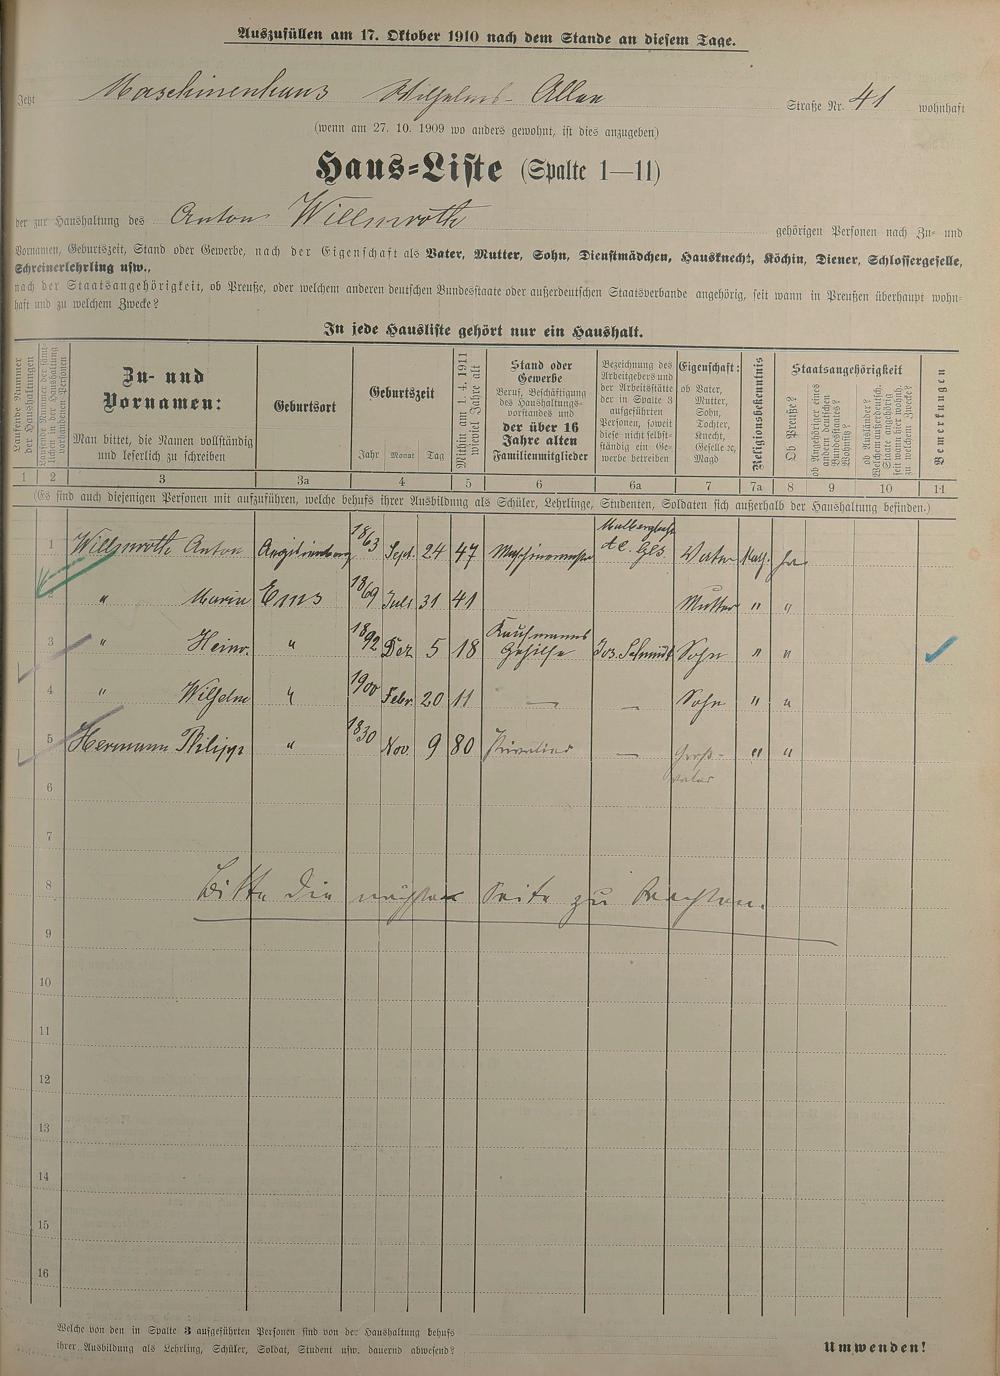 Auszufüllen am 17. Oktober 1910 nach dem Stande an diesem Tage.
Jetzt Maschinenhaus Wilhelms-Allee Straße Nr. 41 wohnhaft
(wenn am 27. 10. 1909 wo anders gewohnt, ist dies anzugeben)
Haus=Liste (Spalte 1—11)
der zur Haushaltung des Anton Willmroth gehörigen Personen nach Zu- und
Vornamen, Geburtszeit, Stand oder Gewerbe, nach der Eigenschaft als Vater, Mutter, Sohn, Dienstmädchen, Hausknecht, Köchin, Diener, Schlossergeselle,
Schreinerlehrling usw.,
nach der Staatsangehörigkeit, ob Preuße, oder welchem anderen deutschen Bundesstaate oder außerdeutschen Staatsverbande angehörig, seit wann in Preußen überhaupt wohn-
haft und zu welchem Zwecke?
In jede Hausliste gehört nur ein Haushalt.
Laufende Nummer
der Haushaltungen
Zu- und
Vornamen:
Man bittet, die Namen vollständig
und leserlich zu schreiben
Geburtsort
Geburtszeit
Jahr Monat Tag
Mithin am 1. 4. 1911
wieviel Jahre alt
Stand oder
Gewerbe
Beruf, Beschäftigung
des Haushaltungs-
vorstandes und
der über 16
Jahre alten
Familienmitglieder
Bezeichnung des
Arbeitgebers und
der Arbeitsstätte
der in Spalte 3
aufgeführten
Personen, soweit
diese nicht selbst-
ständig ein Ge-
werbe betreiben
Eigenschaft:
ob Vater,
Mutter,
Sohn,
Tochter,
Knecht,
Geselle ꝛc,
Magd
Religionsbekenntnis
Staatsangehörigkeit
Ob Preuße?
ob Angehöriger eines
andern deutschen
Bundesstaates?
Wohnsitz?
ob Ausländer?
Welchem außerdeutsch.
Staate angehörig
seit wann hier wohnh.
zu welchem Zwecke?
Bemerkungen
1 2 3 3a 4 5 6 6a 7 7a 8 9 10 11
(Es sind auch diejenigen Personen mit aufzuführen, welche behufs ihrer Ausbildung als Schüler, Lehrlinge, Studenten, Soldaten sich außerhalb der Haushaltung befinden.)
1 Willmroth Anton 1863 Sept. 24 47 Maschinenmeister Vater Kath. Ja
2 " Maria Ems 1869 Juli 31 41 Mutter " "
3 " Heinr. " 1892 Dez 5 18 Kaufmanns Gehilfe Jos. Schmidt Sohn " "
4 " Wilhelm " 1900 Febr. 20 11 — — Sohn " "
5 Hermann Philipp " 1830 Nov. 9 80 — Groß-
vater " "
6
7
8 Bitte die nächste Seite zu beachten.
9
10
11
12
13
14
15
16
Welche von den in Spalte 3 aufgeführten Personen sind von der Haushaltung behufs
ihrer Ausbildung als Lehrling, Schüler, Soldat, Student usw. dauernd abwesend?
Umwenden!